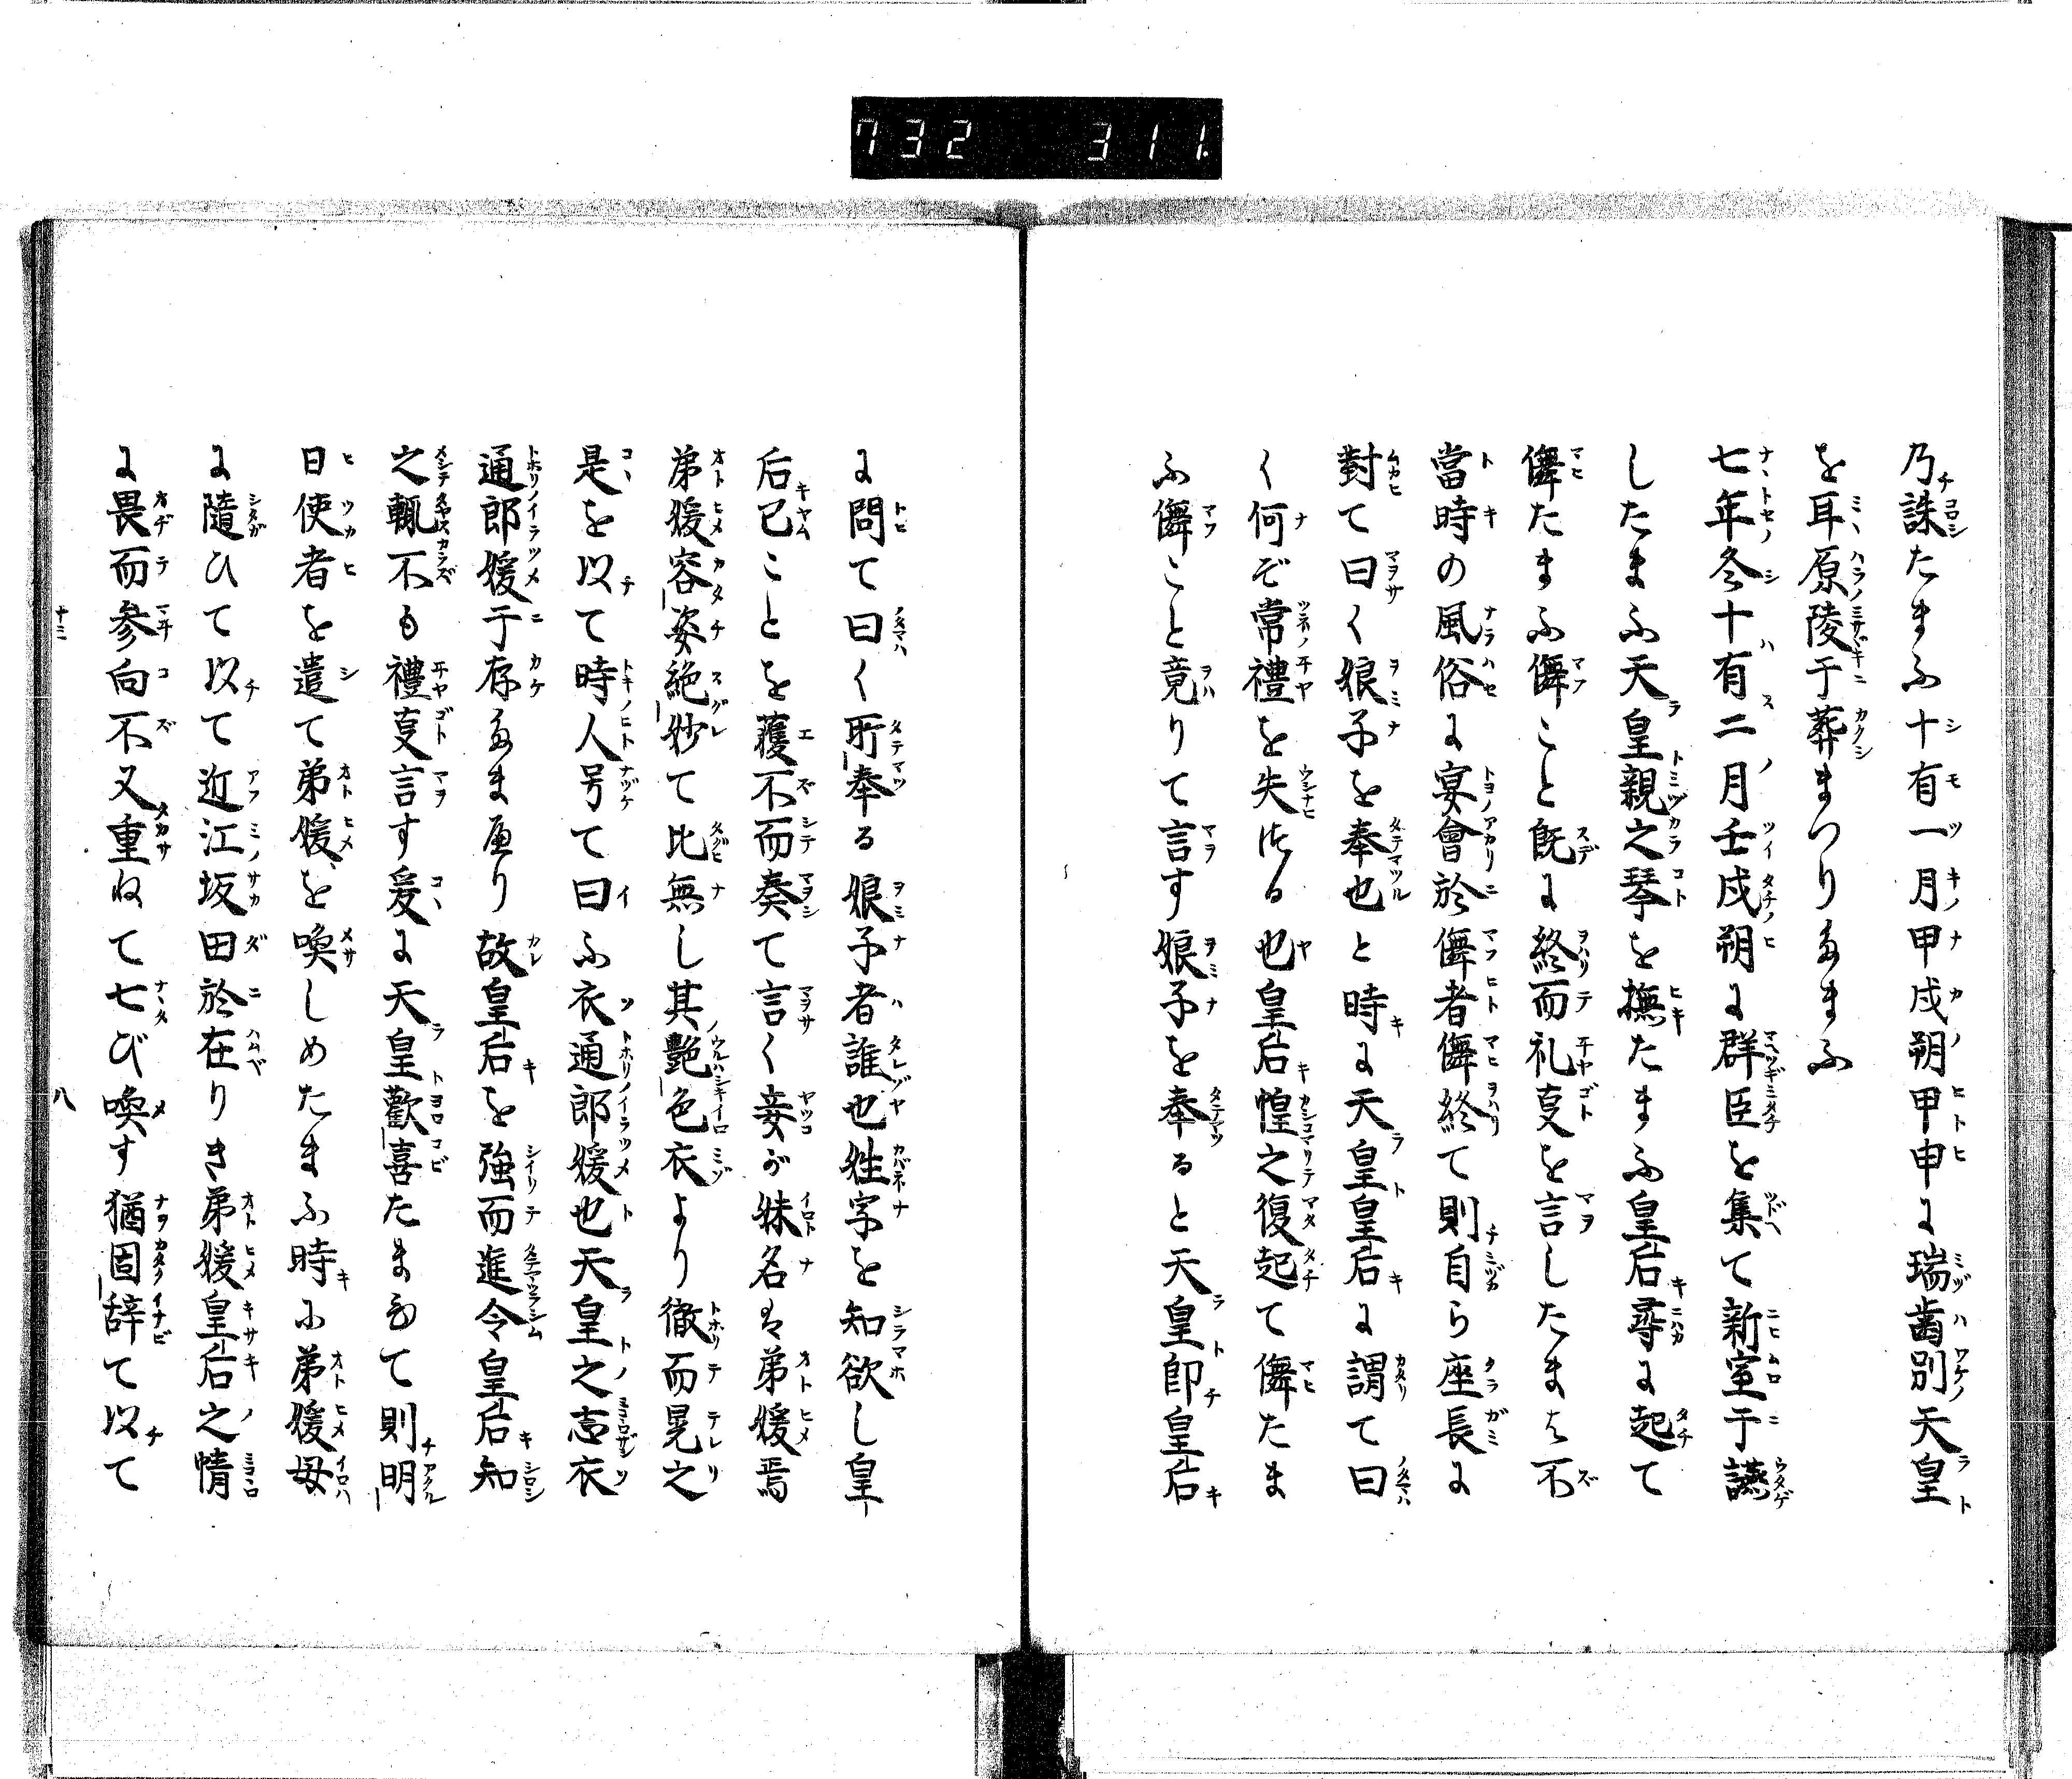 732 311.
乃誅たまふ十有一月甲戌朔甲申に瑞齒別天皇
を耳原陵于葬まつりたまふ
七年冬十有二月壬戌朔に群臣を集て新室于讌
したまふ天皇親之琴を撫たまふ皇后尋に起て
儛たまふ儛こと既に終而礼叓を言したまは不
當時の風俗に宴會於儛者儛終て則自ら座長に
對て曰く娘子を奉也と時に天皇皇后に謂て曰
く何ぞ常禮を失はる也皇后惶之復起て儛たま
ふ儛こと竟りて言す娘子を奉ると天皇即皇后
に問て曰く所奉る娘子者誰也姓字を知欲し皇
后已ことを獲不而奏て言く妾が妹名は弟媛焉
弟媛容姿絶妙て比無し其艶色衣より徹而晃之
是を以て時人号て曰ふ衣通郎媛也天皇之志衣
通郎媛于存たまへり故皇后を強而進令皇后知
之輙不も禮叓言す爰に天皇歡喜たまひて則明
日使者を遣て弟媛を喚しめたまふ時に弟媛母
に隨ひて以て近江坂田於在りき弟媛皇后之情
に畏而参向不又重ねて七び喚す猶固辞て以て
十三 八